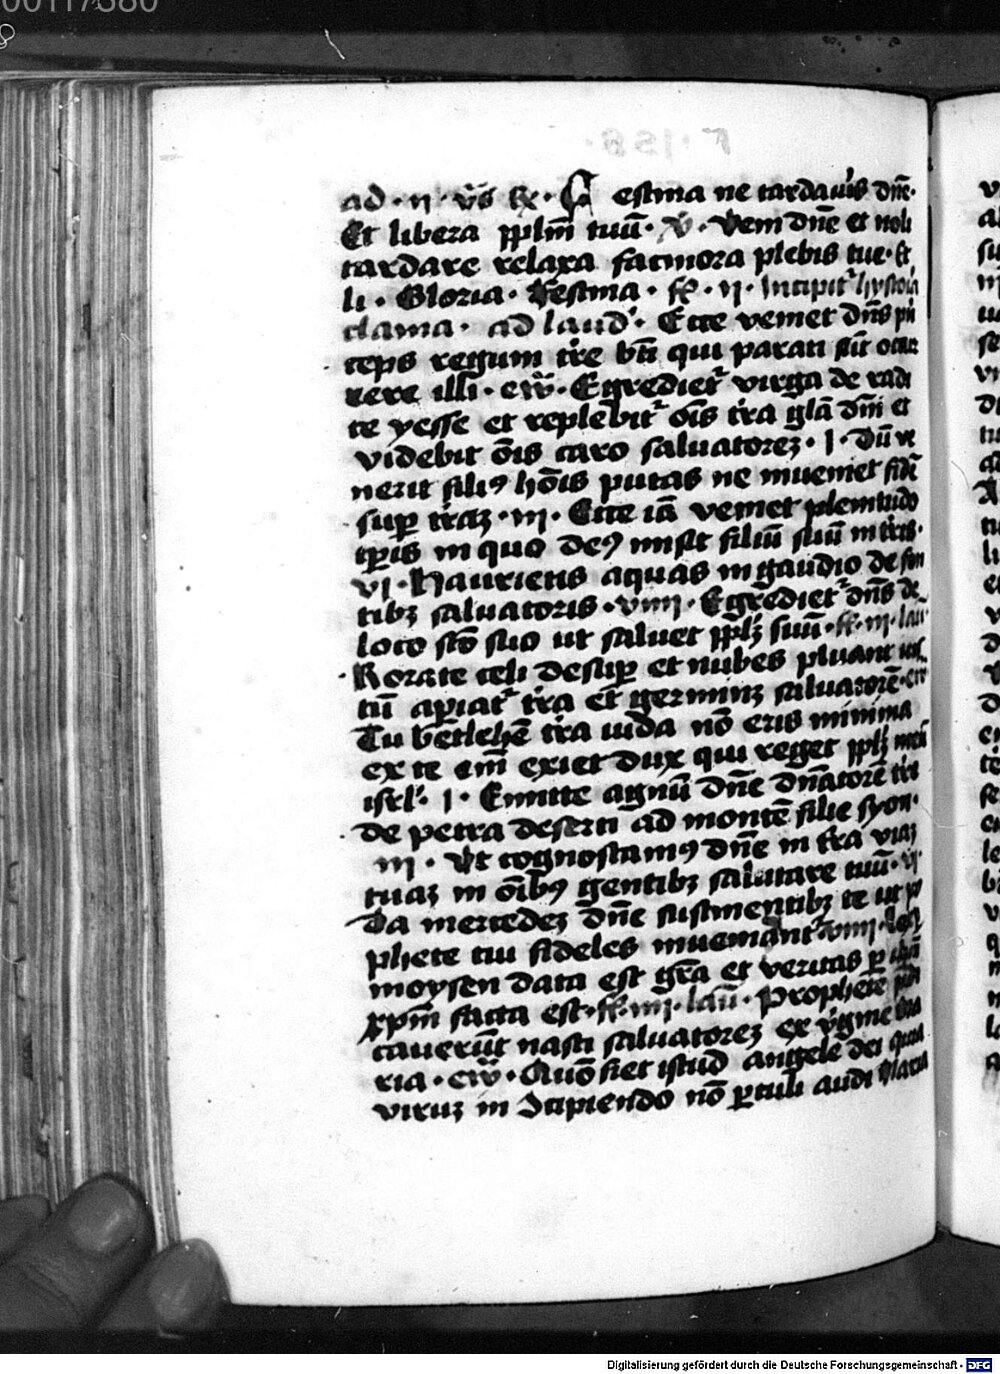 00117380
ad · ii · vṡ ꝶ · Festina ne tardaveris dn̄e ·
Et libera pplm̄ tuū · ℣ · Veni dn̄e et noli
tardare relaxa facinora plebis tue · Et
li · Gloria · Festina · f̄r · ii · Incipitʳ hystoria
clama · ad laud · Ecce veniet dn̄s prin
ceps regum tr̄e bt̄i qui parati sūt occur
rere illi · ew̄ · Egredietʳ virga de radi
ce yesse et replebitʳ oīs tr̄a glā dn̄i et
videbit ōis caro saluatoreȝ · i · Dū ve
nerit filiꝰ hōis putas ne inueniet fidē
suꝑ terraȝ · iii · Ecce iā veniet plenitudo
tꝑis in quo deꝰ misit filiū suū in tr̄is ·
vi · Haurietis aquas in gaudio de fon
tibȝ saluatoris · viiii · Egredietʳ dn̄s de
loco scō suo ut saluet pplȝ suū · f̄r · iii · lau
Rorate celi desuꝑ et nubes pluant ius
tū aperiatʳ tr̄a et germinȝ saluatorē · ew
Tu bethlehē tr̄a iuda nō eris minima
ex te em̄ exiet dux qui reget pplȝ meū
isrl · i · Emitte agnū dn̄e dn̄atorē tr̄e
de petra deserti ad montē filie syon ·
iii · Ut cognoscamꝰ dn̄e in tr̄a viaȝ
tuaȝ in oībꝰ gentibȝ salutare tuū · vi
Da mercedeȝ dn̄e sustinentibȝ te ut ꝓ
phete tui fideles inueniantʳ · viiii · Lex ꝑ
moysen data est gr̄a et veritas ꝑ ihm̄
xp̄m facta est · f̄r · iiii · lau · Prophete predi
cauerūt nasci saluatoreȝ ex v̄gine ma
ria · ew̄ · Quō fiet istud angele dei quia
viruȝ in Icipiendo nō ꝑtuli audi maria
Digitalisierung gefördert durch die Deutsche Forschungsgemeinschaft - DFG